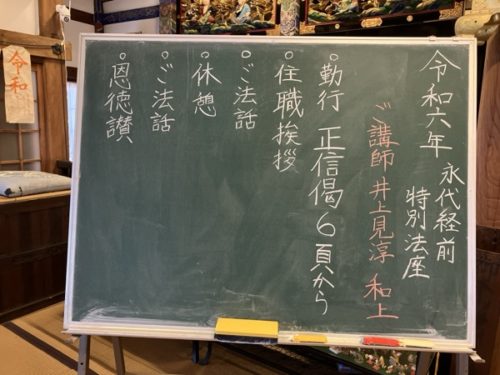 令和六年 永代経前
特別法座
ご講師 井上見淳 和上
○勤行 正信偈 6頁から
○住職挨拶
○ご法話
○休憩
○ご法話
○恩徳讃
令和